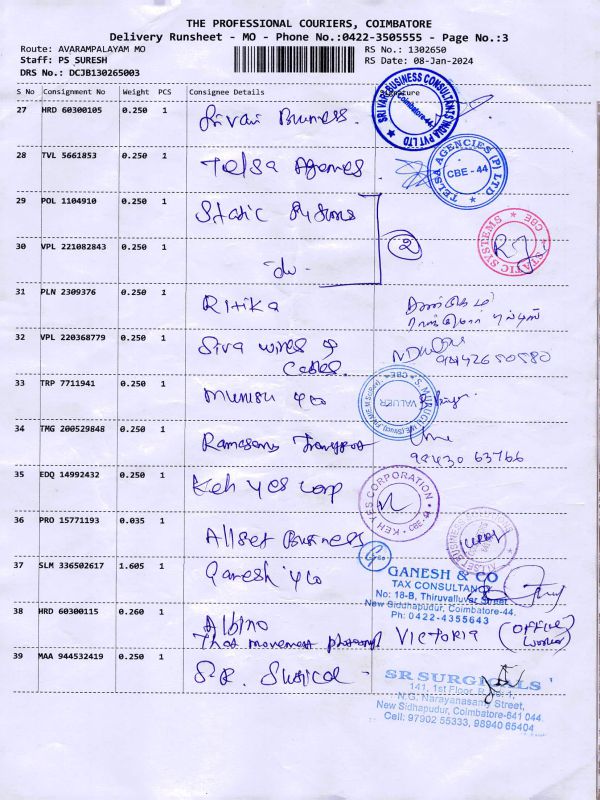 THE PROFESSIONAL COURIERS, COIMBATORE
Delivery Runsheet - MO - Phone No.:0422-3505555 - Page No.:3
Route: AVARAMPALAYAM MO
RS No.: 1302650
Staff: PS SURESH
RS Date: 08-Jan-2024
DRS No.: DCJB130265003
S No Consignment No Weight PCS Consignee Details Signature
27 HRD 60300105 0.250 1 Srivari Business.
SRI VARI BUSINESS CONSULTANTS INDIA PVT LTD
Coimbatore-44
28 TVL 5661853 0.250 1 Telsa Agences
TELSA AGENCIES (P) LTD
CBE - 44
29 POL 1104910 0.250 1 Static Systems
2
STATIC SYSTEMS
CBE
30 VPL 221082843 0.250 1 -do-
31 PLN 2309376 0.250 1 Ritika
32 VPL 220368779 0.250 1 Siva wires &
Cables.
33 TRP 7711941 0.250 1
VALUER
CBE
34 TMG 200529848 0.250 1 Ramasamy Transport
98430 63766
35 EDQ 14992432 0.250 1 Keh Yes Corp
KEH YES CORPORATION
CBE - 6
36 PRO 15771193 0.035 1 Allset Business
ALLSET BUSINESS
37 SLM 336502617 1.605 1 Ganesh & Co
GANESH & CO
TAX CONSULTANT
No: 18-B, Thiruvalluvar Street
New Sidhapudur, Coimbatore-44.
Ph: 0422-4355643
38 HRD 60300115 0.260 1 Albino
That movement VICTORIA (OFFICE
39 MAA 944532419 0.250 1 S.R. Surgical -
SR SURGICALS
141, 1st Floor,
N.G. Narayanasamy Street,
New Sidhapudur, Coimbatore-641 044.
Cell: 97902 55333, 98940 65204